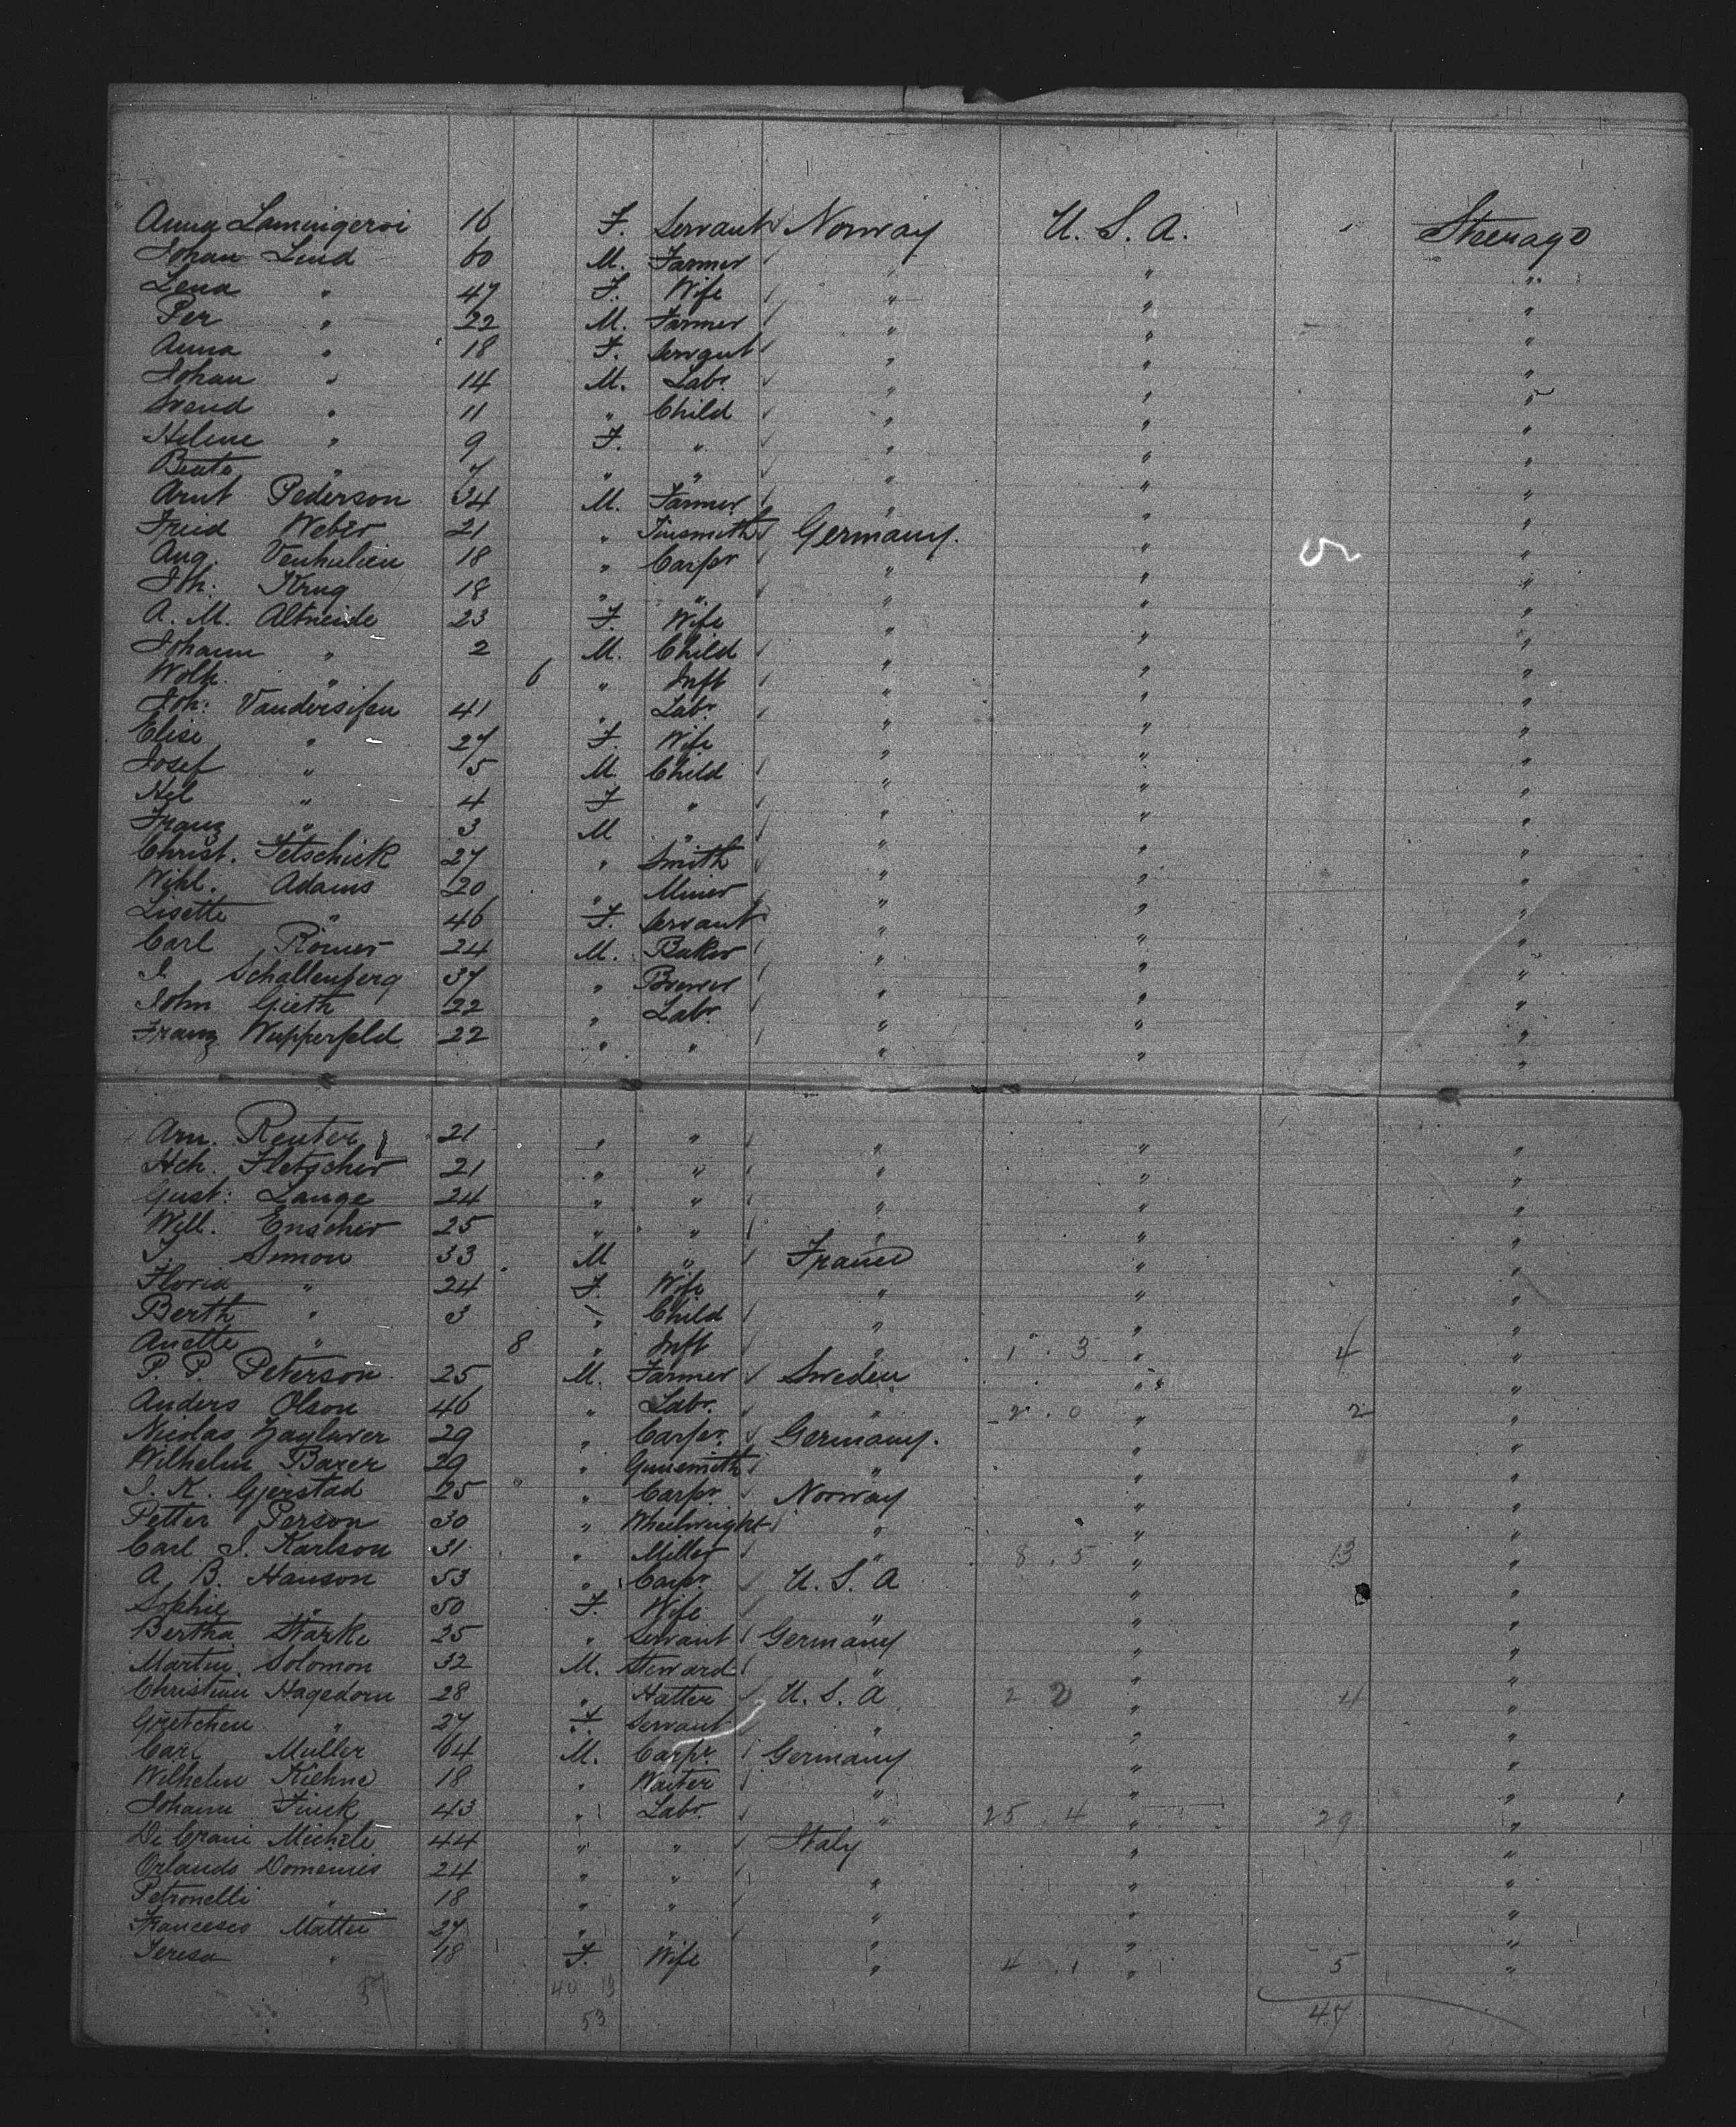 Anna 16 F. Servant Norway U. S. A. Steerage
Johan Lind 60 M. Farmer " " "
Lena " 47 F. Wife " " "
Per " 22 M. Farmer " " "
Anna " 18 F. Servant " " "
Johan " 14 M. Labr. " " "
Svend " 11 " Child " " "
Helene " 9 F. " " " "
Beate " 7 " " " " "
Arnt Pederson 34 M. Farmer " " "
Fried Weber 21 " Tinsmith Germany. " "
Aug. 18 " Carpr " " "
Joh: Krug 18 " " " " "
A. M. Altneide 23 F. Wife " " "
Johann " 2 M. Child " " "
Wilh. " 6 " Inft " " "
Joh: 41 " Labr. " " "
Elise " 27 F. Wife " " "
Josef " 5 M. Child " " "
Hel " 4 F " " " "
Franz " 3 M " " " "
Christ. 27 " Smith " " "
Wihl. Adams 20 " Miner " " "
Lisette " 46 F. Servant " " "
Carl Römer 24 M. Baker " " "
J. Schallenberg 37 " Brewer " " "
John Gieth 22 " Labr. " " "
Franz Wupperfeld. 22 " " " " "
Arn. Reuter 21 " " " " "
Hch. Fletscher 21 " " " " "
Gust: Lange 24 " " " " "
Will. Enscher 25 " " " " "
J. Simon 33 M " France " "
Floria " 24 F. Wife " " "
Berth " 3 " Child " " "
Anette " 8 " Inft " 1 . 3 " 4 "
P. P. Peterson. 25 M. Farmer Sweden " "
Anders Olson 46 " Labr. " 2 . 0 " 2 "
Nicolas 29 " Carpr. Germany. " "
Wilhelm Baxer 29 " Gunsmith " " "
J. K. Gjerstad 25 " Carpr. Norway " "
Petter Person 30 " Wheelwright " " "
Carl J. Karlson 31 " Miller " 8 . 5 " 13 "
A. B. Hanson 53 " Carpr. U. S. A " "
Sophie " 50 F. Wife " " "
Bertha Starke 25 " Servant Germany " "
Martin Solomon 32 M. Steward " " "
Christian Hagedorn 28 " Hatter U. S. A 2 2 " 4 "
Gretchen " 27 F. Servant " " "
Carl Müller 64 M. Carpr. Germany " "
Wilhelm Kiehne 18 " Waiter " " "
Johann Finck 43 " Labr. " 25 . 4 " 29 "
Michele 44 " " Italy " "
Orlando 24 " " " " "
Petronelli " 18 " " " " "
Francesco Mattei 27 " " " " "
Teresa " 18 F. Wife " 4 . 1 " 5 "
57 40 13 47
53